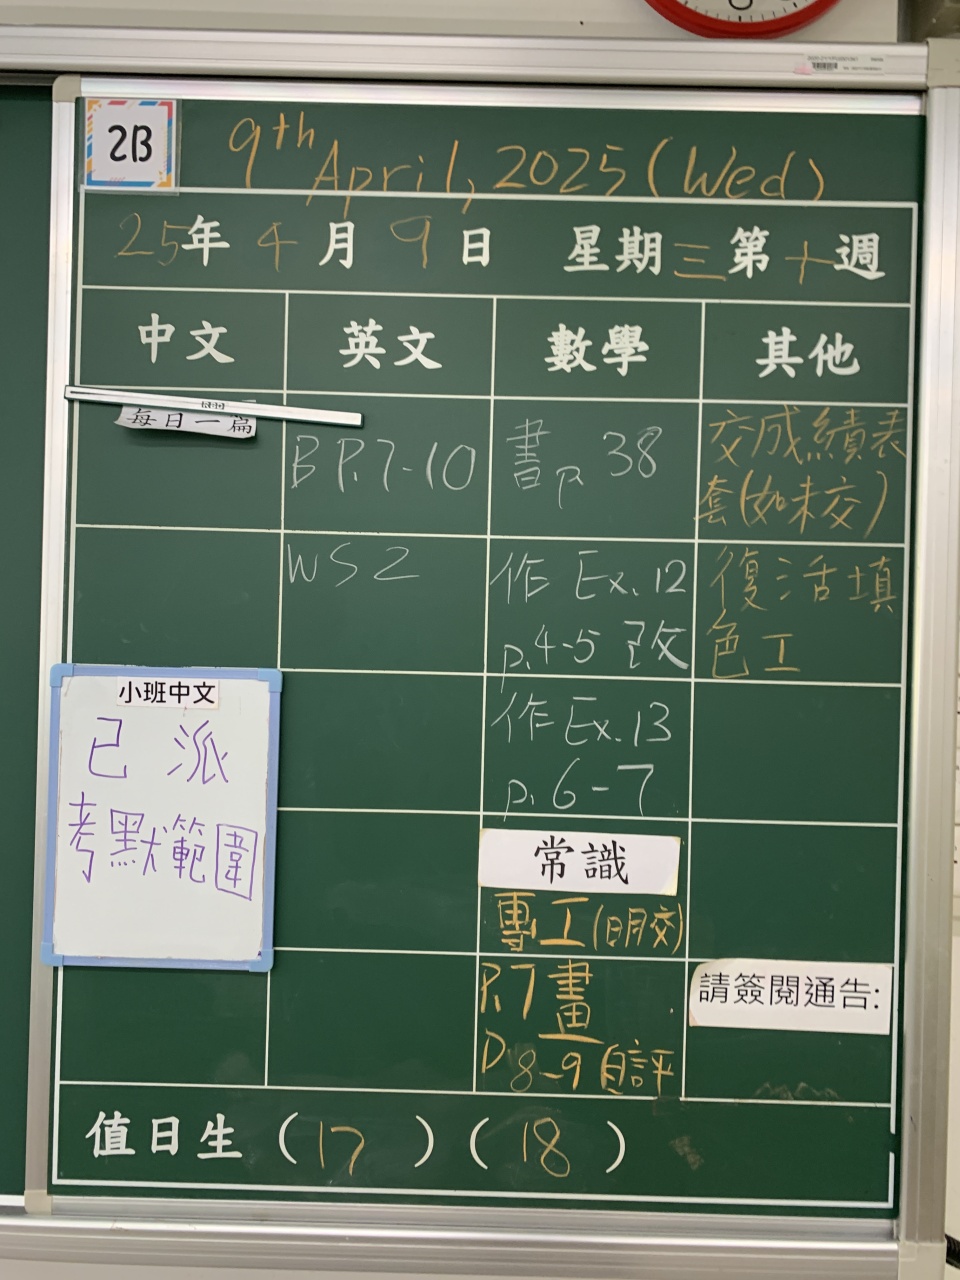 2B
9th April, 2025 (Wed)
25年 4月 9日 星期三 第十週
中文 英文 數學 其他
每日一篇
B P.7-10
書 p 38
交成績表
套(如未交)
WS 2
作 Ex.12
p.4-5 改
復活填
色工
小班中文
已派
考默範圍
作 Ex.13
p.6-7
常識
專工(明交)
P.7 畫
P 8-9 自評
請簽閱通告:
值日生 (17) (18)